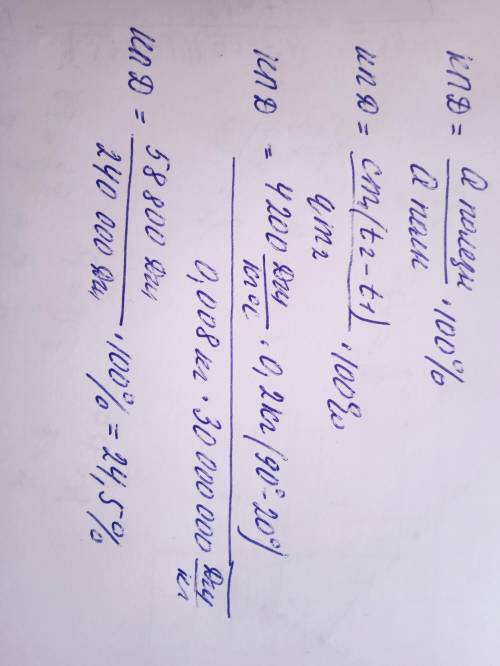 КПД = Q полезн / Q полн · 100%
КПД = cm₁(t₂ - t₁) / qm₂ · 100%
КПД = 4200 Дж/кг°C · 0,2кг (90° - 20°) / 0,008кг · 30 000 000 Дж/кг
КПД = 58 800 Дж / 240 000 Дж · 100% = 24,5%